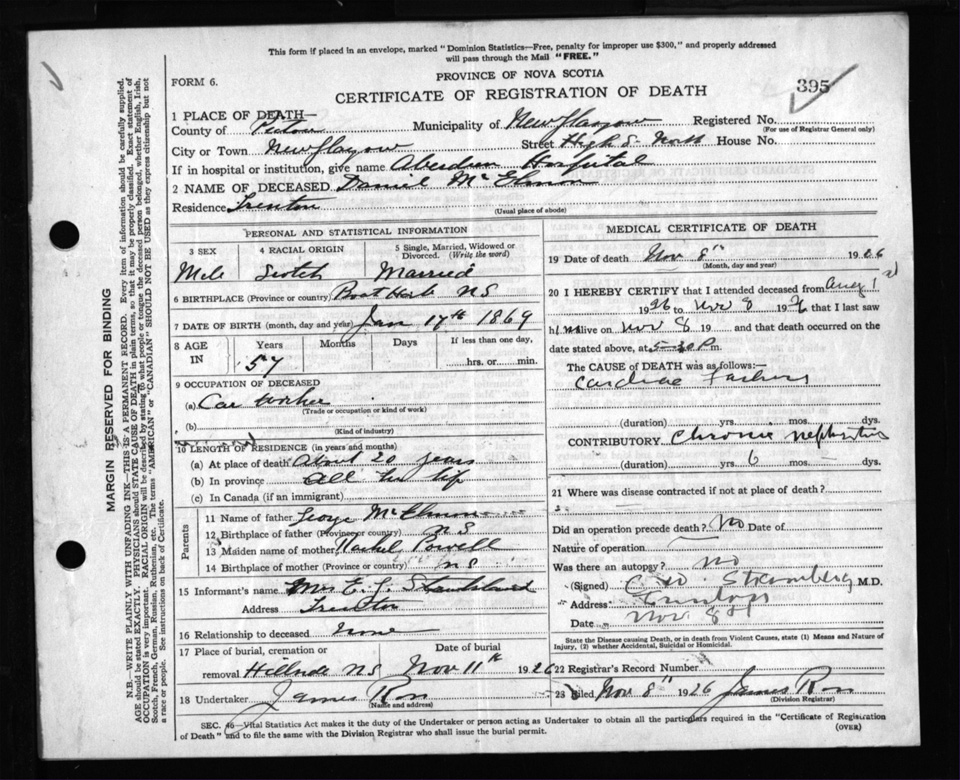 This form if placed in an envelope, marked "Dominion Statistics—Free, penalty for improper use $300," and properly addressed
will pass through the Mail "FREE."
PROVINCE OF NOVA SCOTIA
FORM 6.
395
CERTIFICATE OF REGISTRATION OF DEATH
1 PLACE OF DEATH—
County of Pictou Municipality of New Glasgow Registered No.
(For use of Registrar General only)
City or Town New Glasgow Street High S- North House No.
If in hospital or institution, give name Aberdeen Hospital
2 NAME OF DECEASED Daniel McElmon
Residence Trenton
(Usual place of abode)
PERSONAL AND STATISTICAL INFORMATION
3 SEX 4 RACIAL ORIGIN 5 Single, Married, Widowed or
Divorced. (Write the word)
Male Scotch Married
6 BIRTHPLACE (Province or country) NS
7 DATE OF BIRTH (month, day and year) Jan 17th 1869
8 AGE IN Years Months Days If less than one day,
57 hrs. or min.
9 OCCUPATION OF DECEASED
(a) Car worker
(Trade or occupation or kind of work)
(b)
(Kind of industry)
10 LENGTH OF RESIDENCE (in years and months)
(a) At place of death About 20 years
(b) In province All his life
(c) In Canada (if an immigrant)
Parents
11 Name of father George McElmon
12 Birthplace of father (Province or country) NS
13 Maiden name of mother Powell
14 Birthplace of mother (Province or country) NS
15 Informant's name Mrs E. J.
Address Trenton
16 Relationship to deceased None
17 Place of burial, cremation or Date of burial
removal Hillside NS Nov 11th 1926
18 Undertaker James Ross
(Name and address)
MEDICAL CERTIFICATE OF DEATH
19 Date of death Nov 8th 1926
(Month, day and year)
20 I HEREBY CERTIFY that I attended deceased from Aug 1
1926 to Nov 8 192 that I last saw
him alive on Nov 8 19 and that death occurred on the
date stated above, at 5-30 P m.
The CAUSE OF DEATH was as follows:—
Cardiac Failure
(duration) yrs. mos. dys.
CONTRIBUTORY Chronic nephritis
(duration) yrs. 6 mos. dys.
21 Where was disease contracted if not at place of death?
Did an operation precede death? No Date of
Nature of operation
Was there an autopsy? No
(Signed) Stramberg M.D.
Address
Date Nov 8th
State the Disease causing Death, or in death from Violent Causes, state (1) Means and Nature of
Injury, (2) whether Accidental, Suicidal or Homicidal.
22 Registrar's Record Number
23 Filed Nov 8th 1926 James Ross
(Division Registrar)
SEC. 46—Vital Statistics Act makes it the duty of the Undertaker or person acting as Undertaker to obtain all the particulars required in the "Certificate of Registration
of Death" and to file the same with the Division Registrar who shall issue the burial permit. (OVER)
MARGIN RESERVED FOR BINDING
N.B.—WRITE PLAINLY WITH UNFADING INK—THIS IS A PERMANENT RECORD. Every item of information should be carefully supplied.
AGE should be stated EXACTLY. PHYSICIANS should STATE CAUSE OF DEATH in plain terms, so that it may be properly classified. Exact statement of
OCCUPATION is very important. RACIAL ORIGIN will be described by stating to what people or tongue the deceased person belonged, whether English, Irish,
Scotch, French, German, Russian, Ruthenian, etc. The terms "AMERICAN" or "CANADIAN" SHOULD NOT BE USED as they express citizenship but not
a race or people. See instructions on back of Certificate.